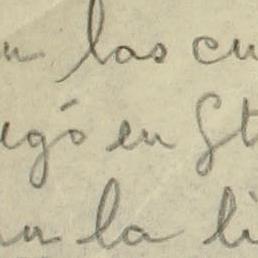 n las cu
ugó en St
un la li